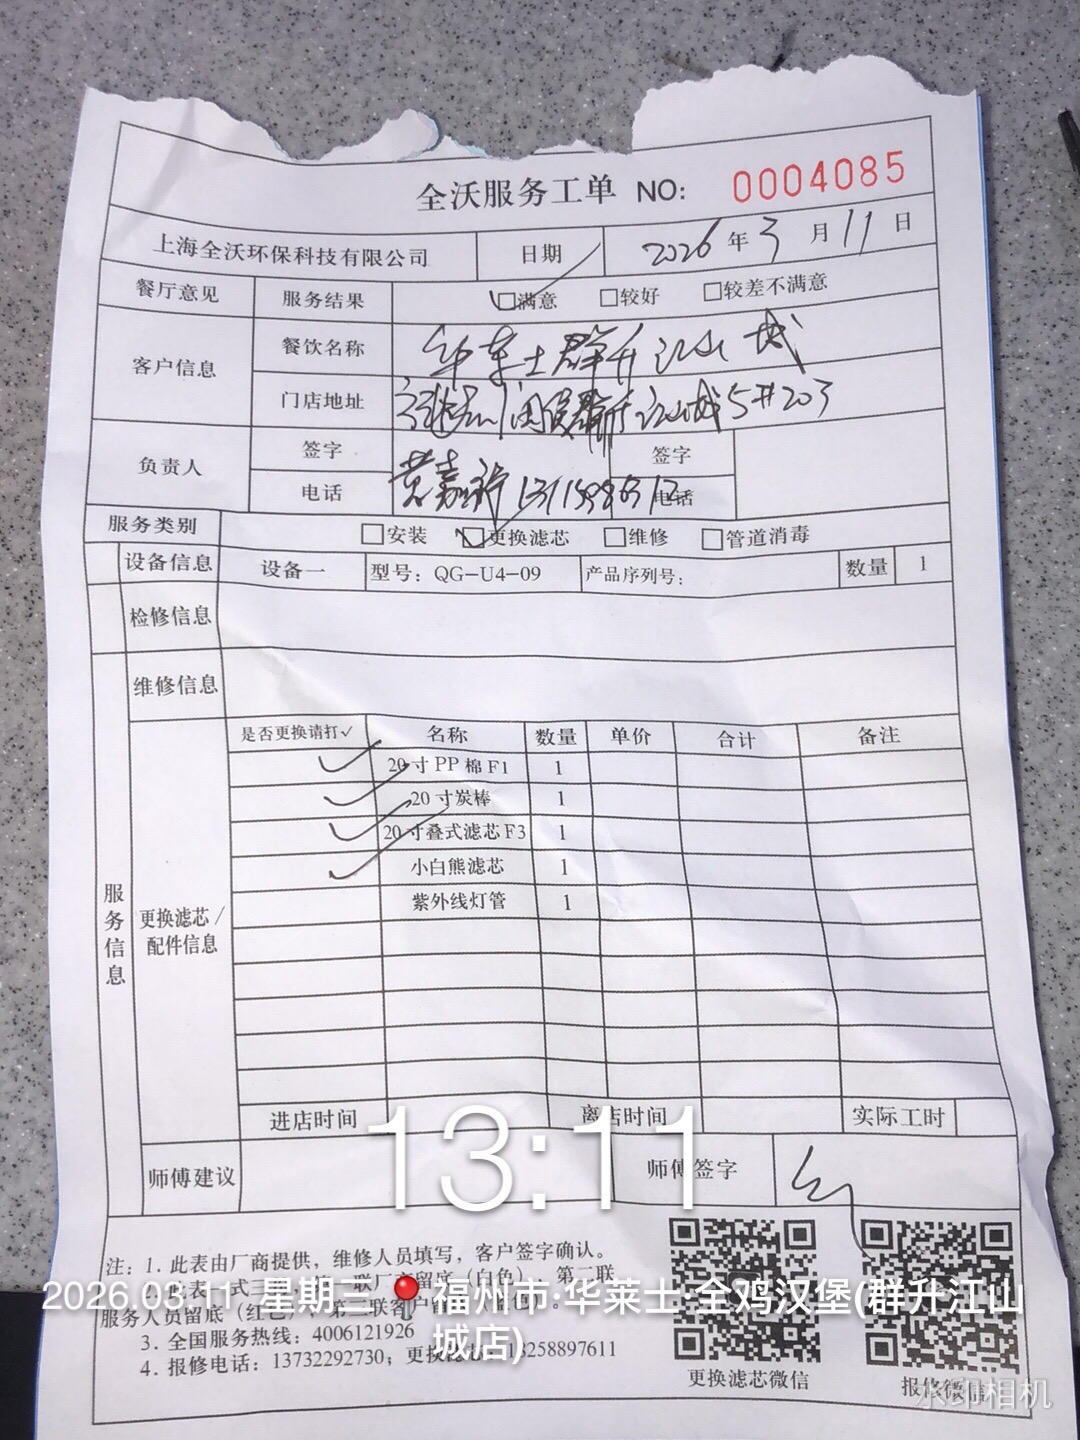 全沃服务工单 NO: 0004085
上海全沃环保科技有限公司 日期 2026年3月11日
餐厅意见 服务结果 ☑满意 □较好 □较差不满意
客户信息 餐饮名称 华莱士群升江山城
门店地址 江山城5#203
负责人 签字 签字
电话 电话
服务类别 □安装 ☑更换滤芯 □维修 □管道消毒
设备信息 设备一 型号：QG-U4-09 产品序列号： 数量 1
检修信息
维修信息
服务信息
更换滤芯/配件信息
是否更换请打✓ 名称 数量 单价 合计 备注
✓ 20寸PP棉F1 1
✓ 20寸炭棒 1
✓ 20寸叠式滤芯F3 1
✓ 小白熊滤芯 1
紫外线灯管 1
进店时间 离店时间 实际工时
13:11
师傅建议 师傅签字
注：1. 此表由厂商提供，维修人员填写，客户签字确认。
2026.03.11 星期三 福州市·华莱士·全鸡汉堡(群升江山城店)
3. 全国服务热线：4006121926
4. 报修电话：13732292730；更换滤芯 18258897611
更换滤芯微信 报修微信
水印相机